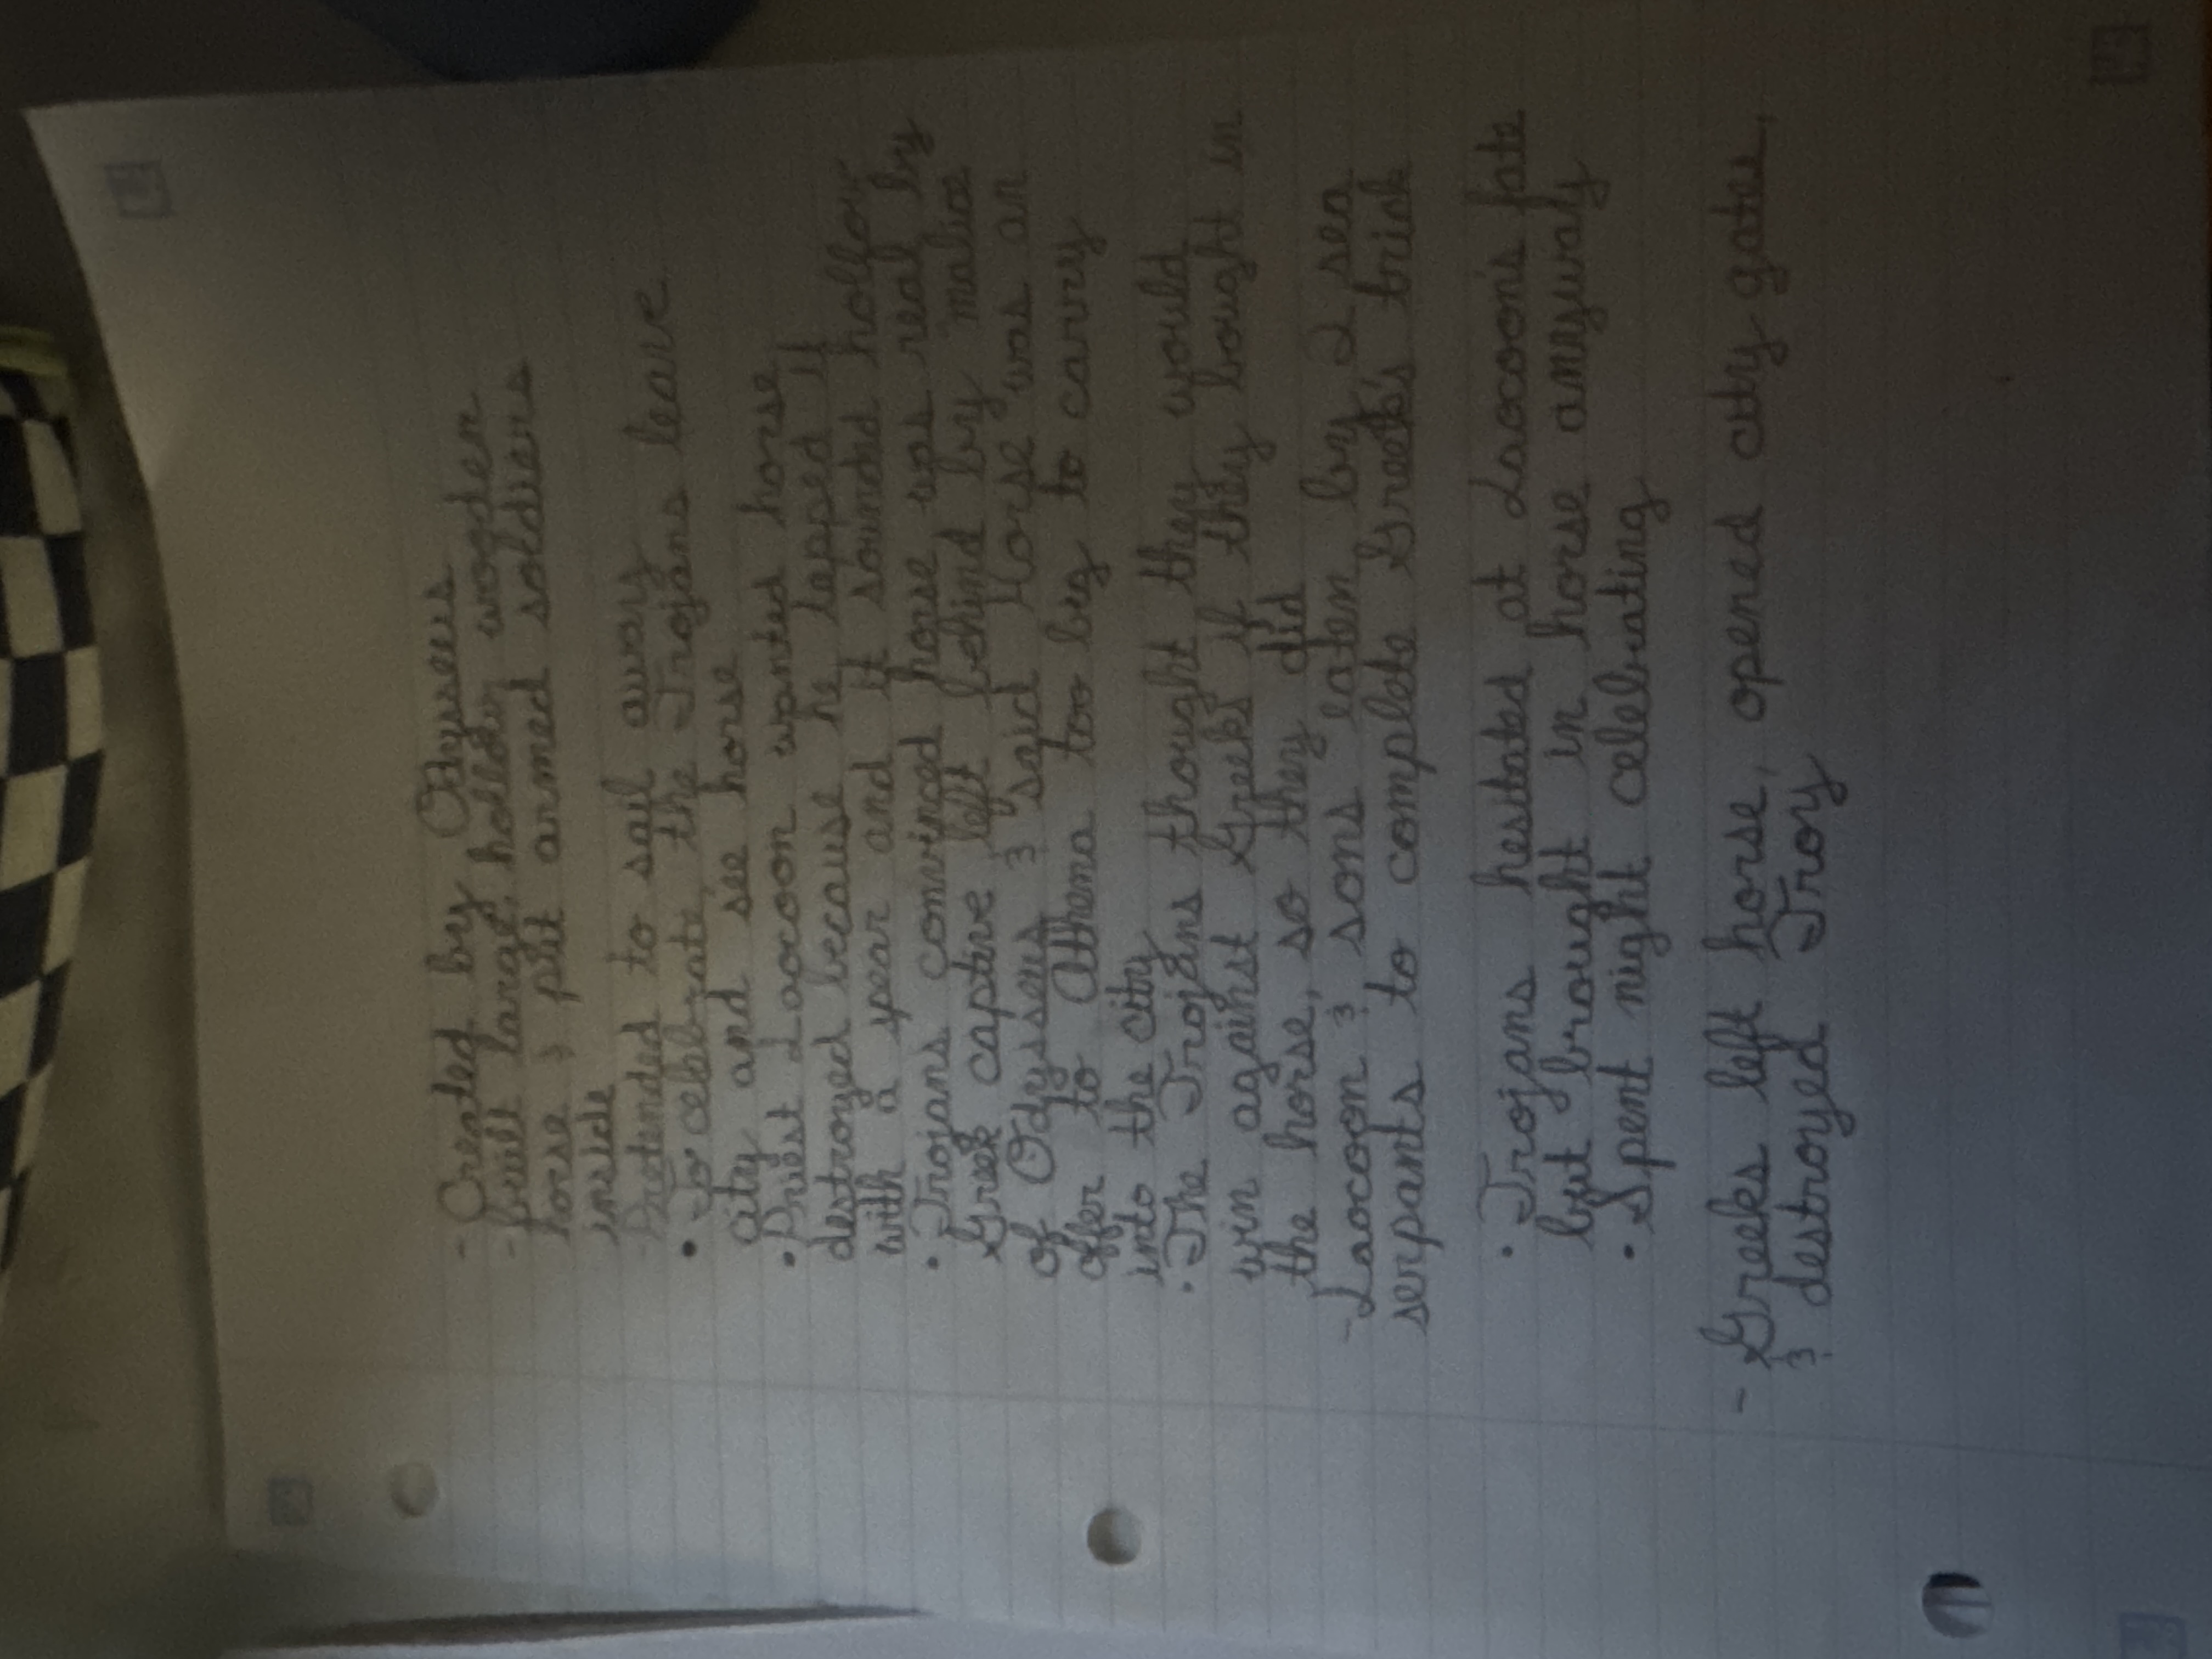 - Created by Odyssees
- built large, hollow wooden
horse & put armed soldiers
inside
- Pretended to sail away
• To celebrate, the Trojans leave
city and see horse
• Priest Laocoon wanted horse
destroyed because he tapped it
with a spear and it sounded hollow
• Trojans convinced horse was real by
Greek captive left behind by malice
of Odysseus & said Horse was an
offer to Athena too big to carry
into the city
• The Trojans thought they would
win against Greeks if they bought in
the horse, so they did
- Laocoon & sons eaten by 2 sea
serpants to complete Greek's trick
• Trojans hesitated at Laocoon's fate
but brought in horse anyway
• Spent night celebrating
- Greeks left horse, opened city gates,
& destroyed Troy